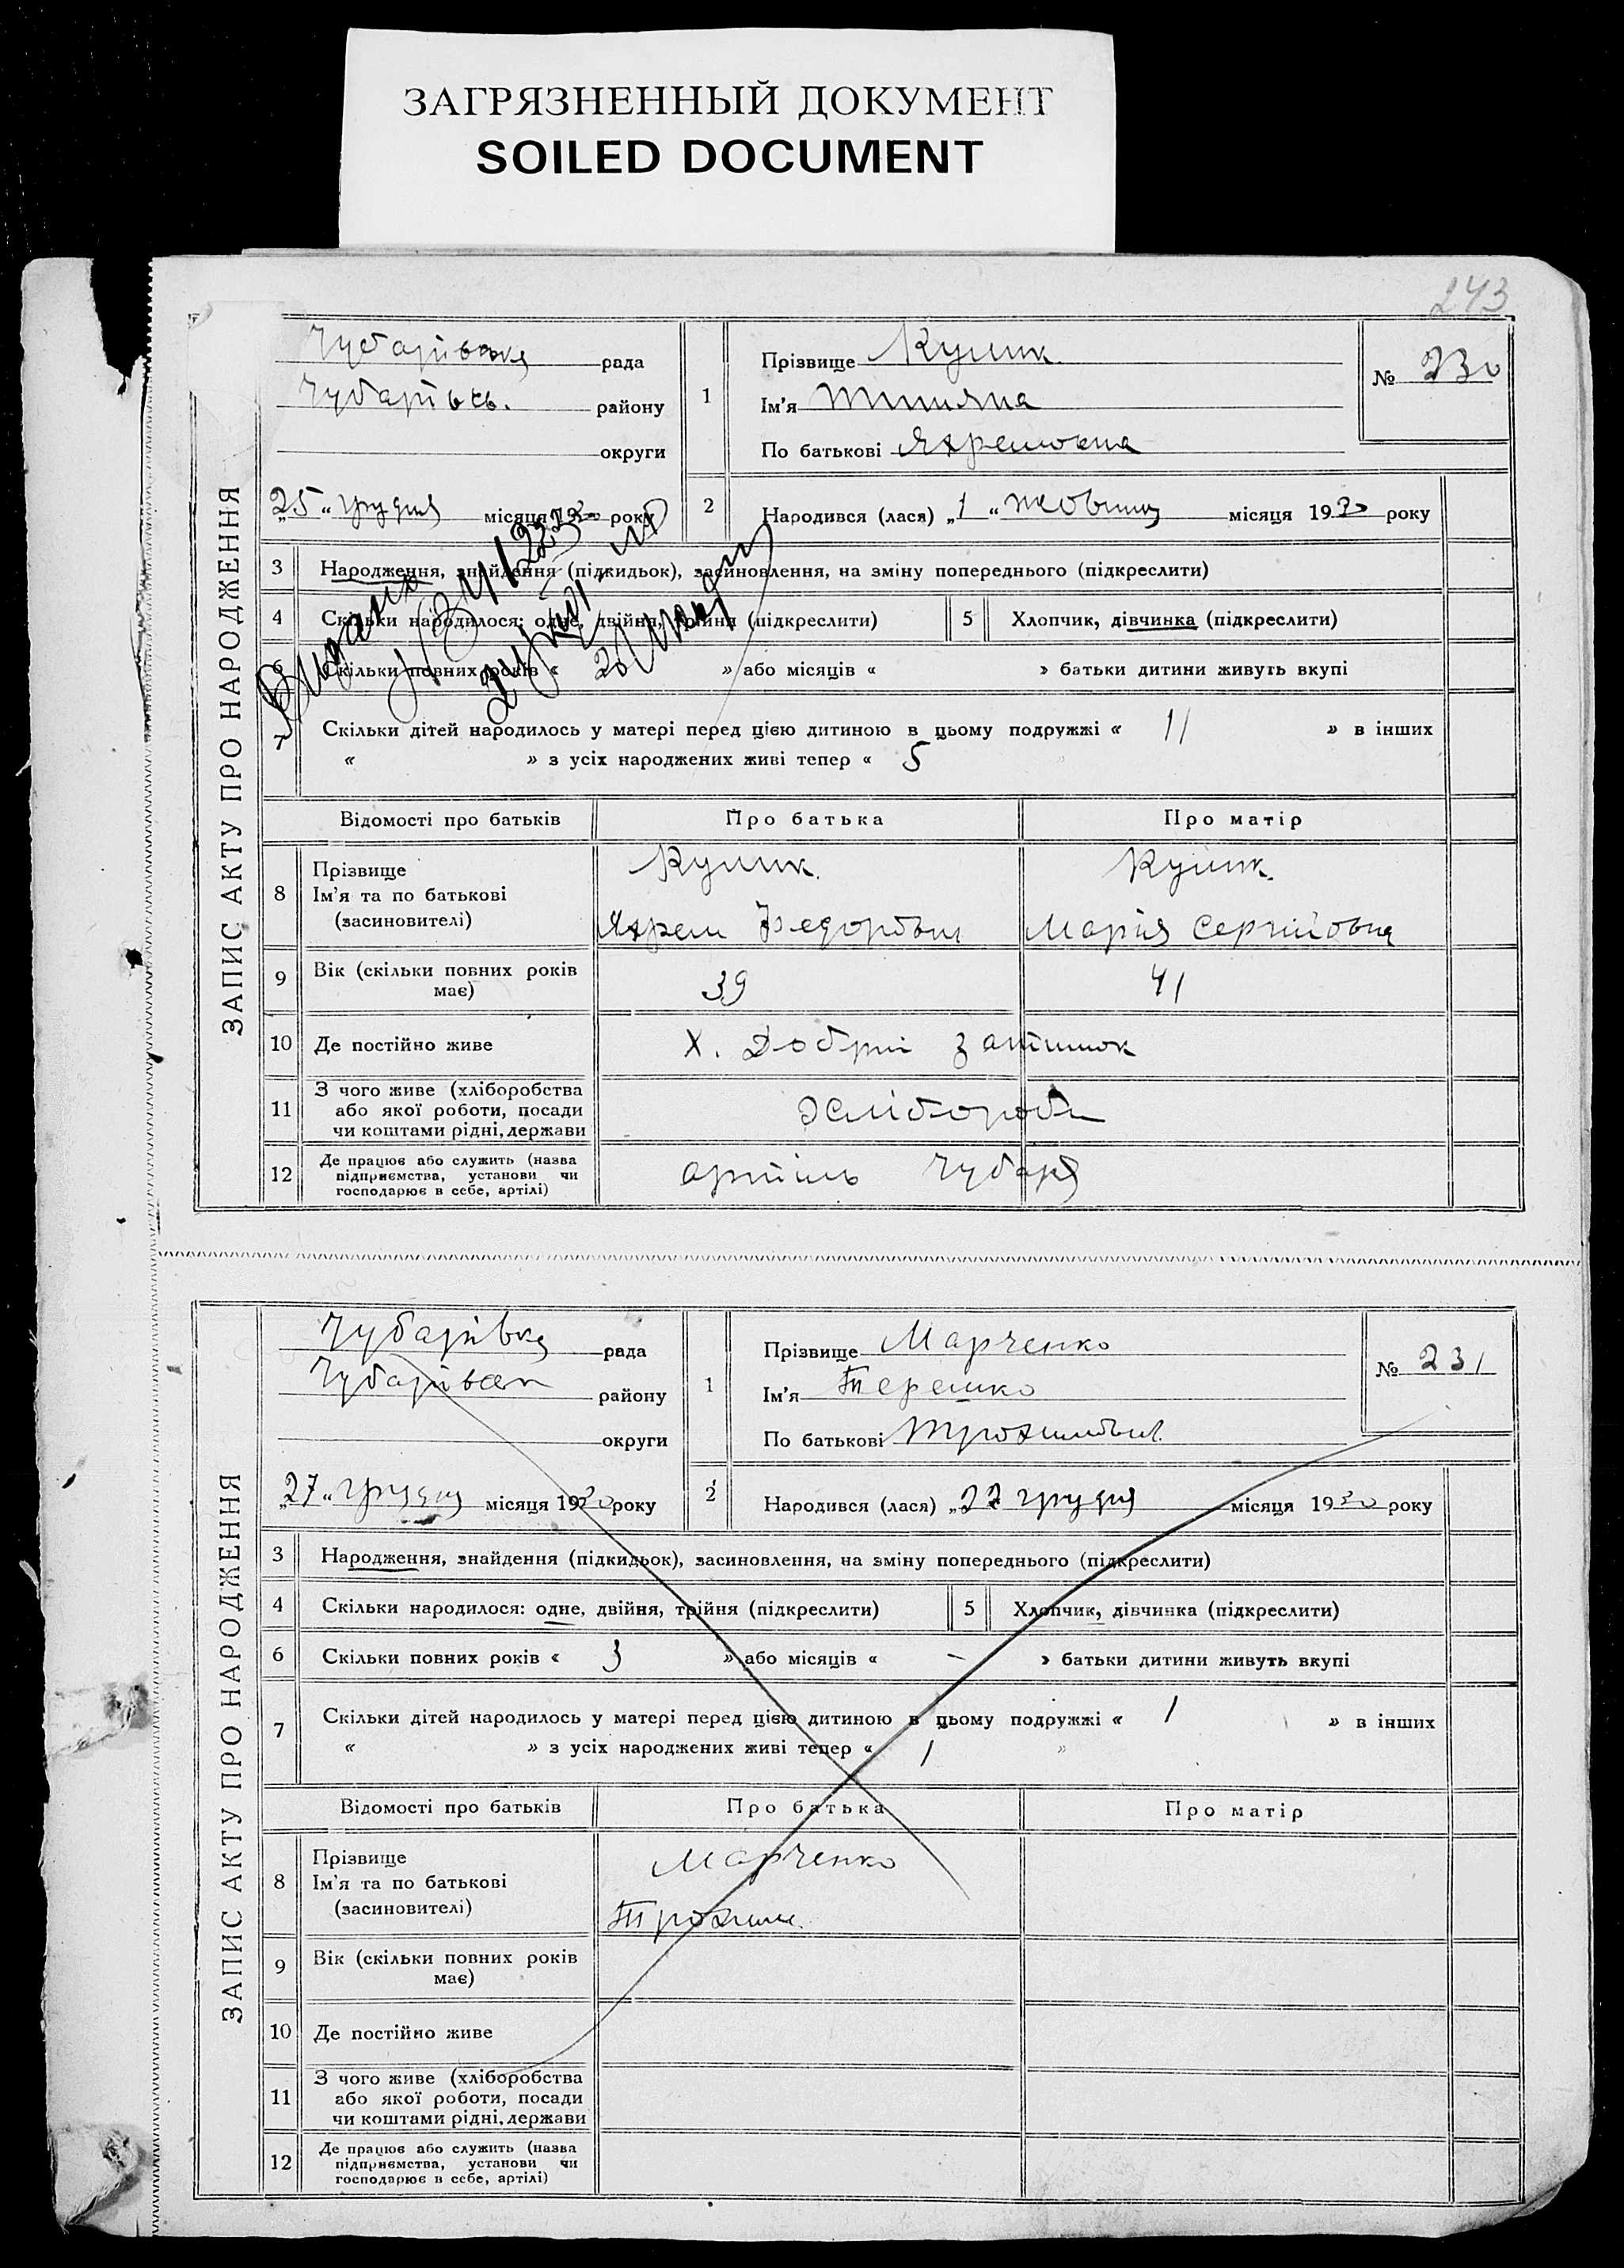 ЗАГРЯЗНЕННЫЙ ДОКУМЕНТ
SOILED DOCUMENT
243
ЗАПИС АКТУ ПРО НАРОДЖЕННЯ
Чубарівська рада
Чубарівсь. району
округи
1
Прізвище Кулик
Ім'я Тетяна
По батькові Яхремовна
№ 230
„25“ грудня місяця 1930 року
2
Народився (лася) „1“ жовтня місяця 1930 року
3 Народження, знайдення (підкидьок), засиновлення, на зміну попереднього (підкреслити)
4 Скільки народилося: одне, двійня, трійня (підкреслити)
5 Хлопчик, дівчинка (підкреслити)
6 Скільки повних років « » або місяців « » батьки дитини живуть вкупі
7 Скільки дітей народилось у матері перед цією дитиною в цьому подружжі « 11 » в інших
« » з усіх народжених живі тепер « 5
Відомості про батьків Про батька Про матір
8 Прізвище
Ім'я та по батькові
(засиновителі)
Кулик. Кулик.
Яхрем Федорович Марія Сергіїовна
9 Вік (скільки повних років
має)
39 41
10 Де постійно живе Х. Добрий Затишок
11 З чого живе (хліборобства
або якої роботи, посади
чи коштами рідні, держави
Хлібороби
12 Де працює або служить (назва
підприємства, установи чи
господарює в себе, артілі)
артіль Чубаря
ЗАПИС АКТУ ПРО НАРОДЖЕННЯ
Чубарівка рада
Чубарівськ району
округи
1
Прізвище Марченко
Ім'я Терешко
По батькові Трохимович
№ 231
„27“ грудня місяця 1930 року
2
Народився (лася) „27 грудня місяця 1930 року
3 Народження, знайдення (підкидьок), засиновлення, на зміну попереднього (підкреслити)
4 Скільки народилося: одне, двійня, трійня (підкреслити)
5 Хлопчик, дівчинка (підкреслити)
6 Скільки повних років « 3 » або місяців « – » батьки дитини живуть вкупі
7 Скільки дітей народилось у матері перед цією дитиною в цьому подружжі « 1 » в інших
« » з усіх народжених живі тепер « 1 »
Відомості про батьків Про батька Про матір
8 Прізвище
Ім'я та по батькові
(засиновителі)
Марченко
Трохим.
9 Вік (скільки повних років
має)
10 Де постійно живе
11 З чого живе (хліборобства
або якої роботи, посади
чи коштами рідні, держави
12 Де працює або служить (назва
підприємства, установи чи
господарює в себе, артілі)